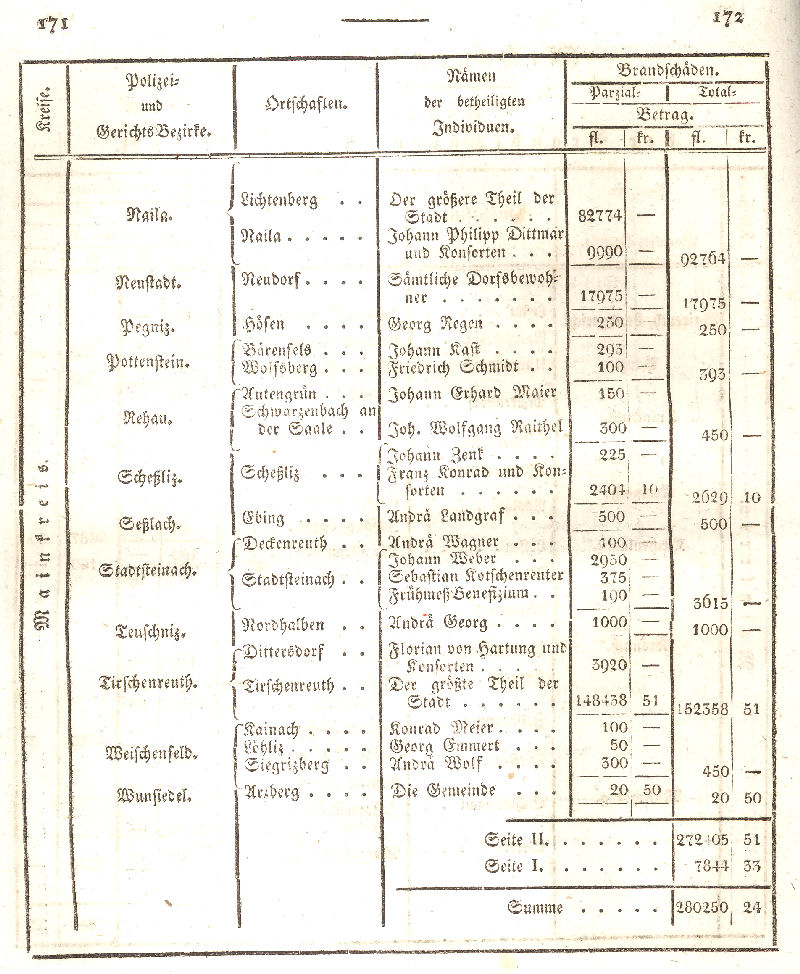 171
172
Kreise.
Polizei-
und
Gerichts Bezirke.
Ortschaften.
Nämen
der betheiligten
Individuen.
Brandschäden.
Parzial- Total-
Betrag.
fl. kr. fl. kr.
Mainkreis.
Naila. Lichtenberg . . Der größere Theil der
Stadt . . . . . . 82774 —
Naila . . . . . Johann Philipp Dittmar
und Konsorten . . . 9990 — 92764 —
Neustadt. Neudorf . . . . Sämtliche Dorfsbewoh-
ner . . . . . . . 17975 — 17975 —
Pegniz. Hösen . . . . Georg Regen . . . . 250 — 250 —
Pottenstein. Bärenfels . . . Johann Kast . . . . 293 —
Wolfsberg . . . Friedrich Schmidt . . 100 — 393 —
Rehau. Autengrün . . . Johann Erhard Maier 150 —
Schwarzenbach an
der Saale . . Joh. Wolfgang Raithel 300 — 450 —
Scheßliz. Scheßliz . . . Johann Zenk . . . . 225 —
Franz Konrad und Kon-
sorten . . . . . . 2404 10 2629 10
Seßlach. Ebing . . . . Andrä Landgraf . . . 500 — 500 —
Stadtsteinach. Deckenreuth . . Andrä Wagner . . . 100 —
Stadtsteinach . . Johann Weber . . . 2950 —
Sebastian Kotschenreuter 375 —
Frühmeß Benefizium . . 190 — 3615 —
Teuschniz. Nordhalben . . Andrä Georg . . . . 1000 — 1000 —
Tirschenreuth. Dittersdorf . . Florian von Hartung und
Konsorten . . . . 3920 —
Tirschenreuth . . Der größte Theil der
Stadt . . . . . . 148438 51 152358 51
Weischenfeld. Kainach . . . . Konrad Meier . . . . 100 —
Löhliz . . . . . Georg Emmert . . . 50 —
Siegrizberg . . Andrä Wolf . . . . 300 — 450 —
Wunsiedel. Arzberg . . . . Die Gemeinde . . . 20 50 20 50
Seite II. . . . . . . 272405 51
Seite I. . . . . . . 7844 33
Summe . . . . . 280250 24